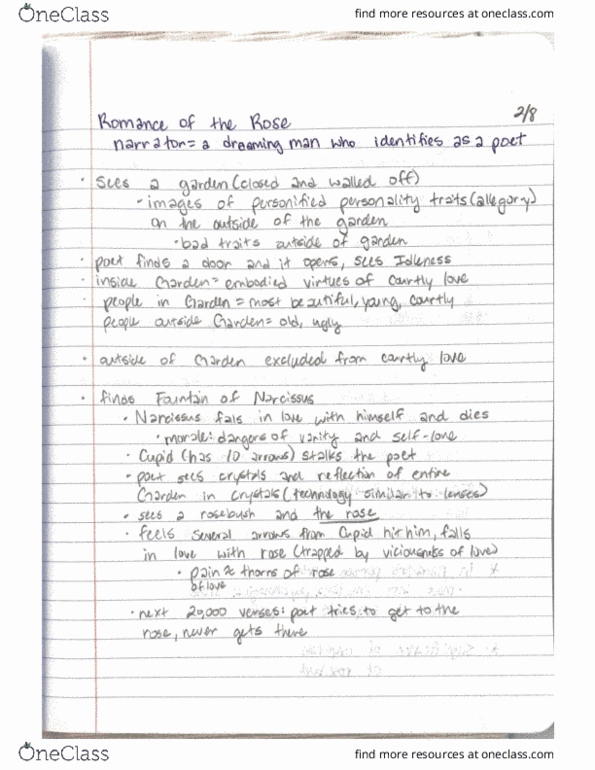 OneClass
find more resources at oneclass.com
2/8
Romance of the Rose
narrator = a dreaming man who identifies as a poet
• sees a garden (closed and walled off)
• images of personified personality traits (allegory)
on the outside of the garden
• bad traits outside of garden
• poet finds a door and it opens, sees Idleness
• inside Garden = embodied virtues of courtly love
• people in Garden = most beautiful, young, courtly
people outside Garden = old, ugly
• outside of Garden excluded from courtly love
• finds Fountain of Narcissus
• Narcissus falls in love with himself and dies
• morale: dangers of vanity and self-love
• Cupid (has 10 arrows) stalks the poet
• poet sees crystals and reflection of entire
Garden in crystals (technology similar to lenses)
• sees a rosebush and the rose
• feels several arrows from Cupid hit him, falls
in love with rose (trapped by of love)
• pain ≈ thorns of rose
of love
• next 20,000 verses: poet tries to get to the
rose, never gets there
OneClass
find more resources at oneclass.com